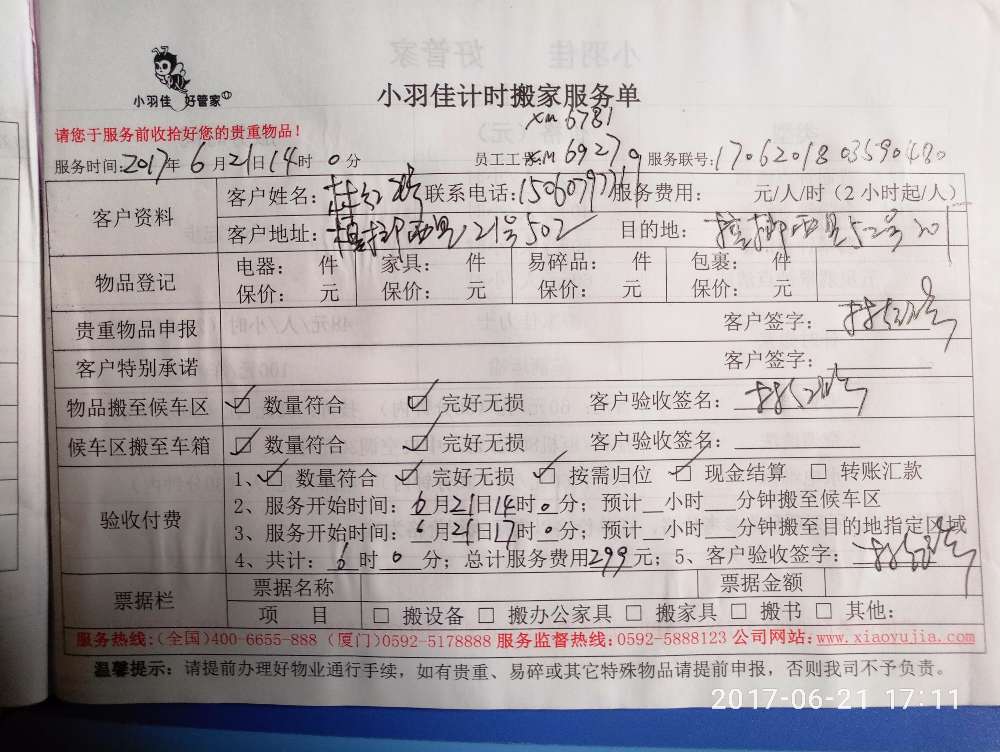 小羽佳 好管家
小羽佳 好管家
小羽佳计时搬家服务单
请您于服务前收拾好您的贵重物品！
XM 6781
服务时间:2017年 6月21日14时 0分 员工工号: XM 6927 服务联号:17062018 03590480
客户资料 客户姓名: 联系电话: 服务费用: 元/人/时（2小时起/人）
客户地址: 西里21号502 目的地: 西里52号201
物品登记 电器: 件 家具: 件 易碎品: 件 包裹: 件
保价: 元 保价: 元 保价: 元 保价: 元
贵重物品申报 客户签字:
客户特别承诺 客户签字:
物品搬至候车区 ☑ 数量符合 ☑ 完好无损 客户验收签名:
候车区搬至车箱 ☑ 数量符合 ☑ 完好无损 客户验收签名:
验收付费 1、☑ 数量符合 ☑ 完好无损 ☑ 按需归位 ☑ 现金结算 □ 转账汇款
2、服务开始时间: 6月21日14时0分；预计__小时___分钟搬至候车区
3、服务开始时间: 6月21日17时0分；预计__小时___分钟搬至目的地指定区域
4、共计: 6时 0 分；总计服务费用299元；5、客户验收签字:
票据栏 票据名称 票据金额
项 目 □ 搬设备 □ 搬办公家具 □ 搬家具 □ 搬书 □ 其他:
服务热线:(全国)400-6655-888 (厦门)0592-5178888 服务监督热线:0592-5888123 公司网站:www.xiaoyujia.com
温馨提示: 请提前办理好物业通行手续，如有贵重、易碎或其它特殊物品请提前申报，否则我司不予负责。
2017-06-21 17:11